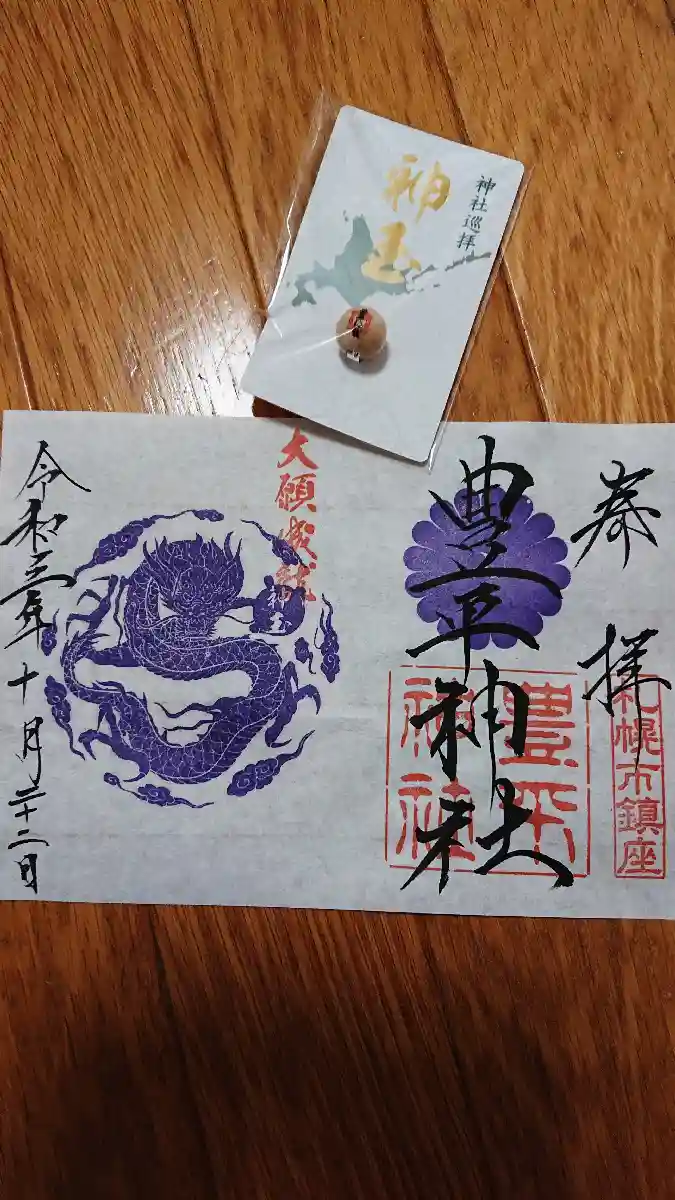 神社巡拝
神玉
奉拝
札幌市鎮座
豊平神社
豊平
神社
大願成就
神玉
令和三年十月二十二日